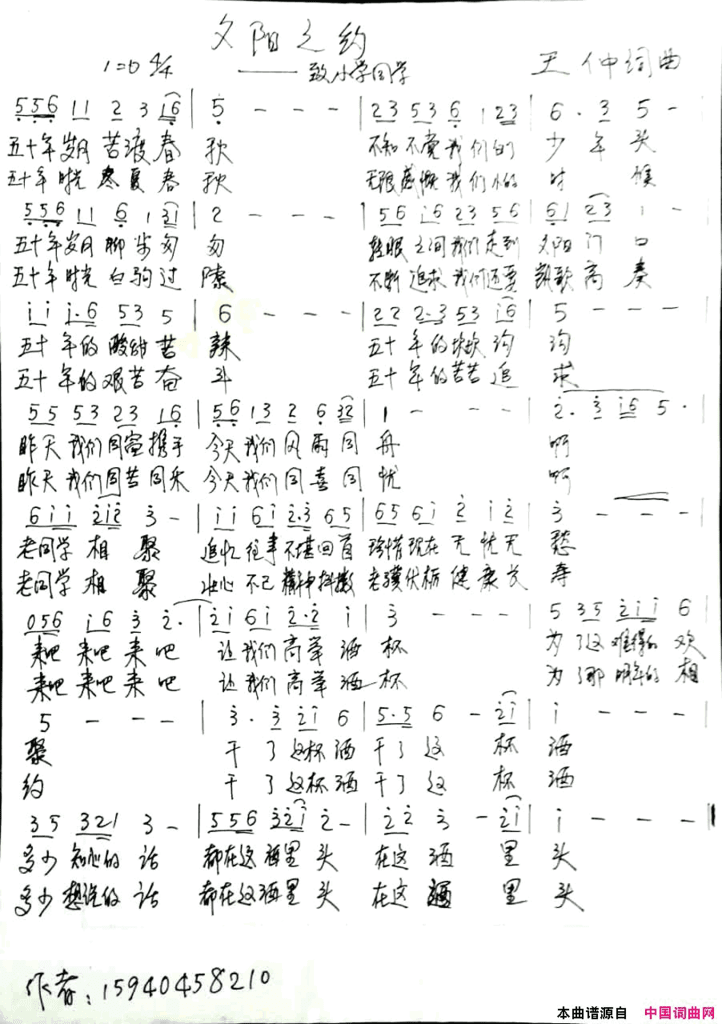 夕阳之约
1=D 4/4 ——致小学同学 王仲词曲
5 5 6 1 1 2 3 1 6 | 5 - - - | 2 3 5 3 6 1 2 3 | 6 . 3 5 - |
五十年岁月 苦渡春 秋 不知不觉我们的 少年 头
五十年时光 寒夏春 秋 无限感慨我们小的 时 候
5 5 6 1 1 6 1 3 1 | 2 - - - | 5 6 i 6 2 3 5 6 | 6 1 2 3 1 -
五十年岁月 脚步匆 匆 眨眼之间我们走到 夕阳门 口
五十年时光 白驹过 隙 不断追求我们还要 凯歌高 奏
i i i . 6 5 3 5 | 6 - - - | 2 2 2 . 3 5 3 i 6 | 5 - - -
五十年的酸甜苦 辣 五十年的坎坎沟 沟
五十年的艰苦奋 斗 五十年的苦苦追 求
5 5 5 3 2 3 1 6 | 5 6 1 3 2 6 3 2 | 1 - - - | 2 . 3 i 6 5 .
昨天我们同窗携手 今天我们风雨同 舟 啊
昨天我们同苦同乐 今天我们同喜同 忧 啊
6 i i 2 i 2 3 - | i i 6 i 2 . 3 6 5 | 6 5 6 i 2 i 2 | 3 - - -
老同学 相 聚 追忆往事不堪回首 珍惜现在无忧无 愁
老同学 相 聚 壮心不已精神抖擞 老骥伏枥健康长 寿
0 5 6 i 6 3 2 . | 2 i 6 i 2 . 2 i | 3 - - - | 5 3 5 2 i i 6
来吧 来吧 来 吧 让我们高举 酒 杯 为了这难得的 欢
来吧 来吧 来 吧 让我们高举 酒 杯 为了那明年的 相
5 - - - | 3 . 3 2 i 6 | 5 . 5 6 - 2 i | i - - -
聚 干了这杯酒 干了这 杯 酒
约 干了这杯酒 干了这 杯 酒
3 5 3 2 1 3 - | 5 5 6 3 2 i 2 - | 2 2 3 - 2 i | i - - -
多少知心的 话 都在这酒里 头 在这 酒 里 头
多少想说的 话 都在这酒里 头 在这 酒 里 头
作者:15940458210
本曲谱源自 中国词曲网